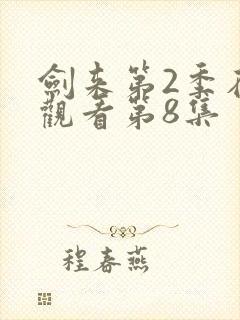 劍来第2季在
觀看第8集
程春燕